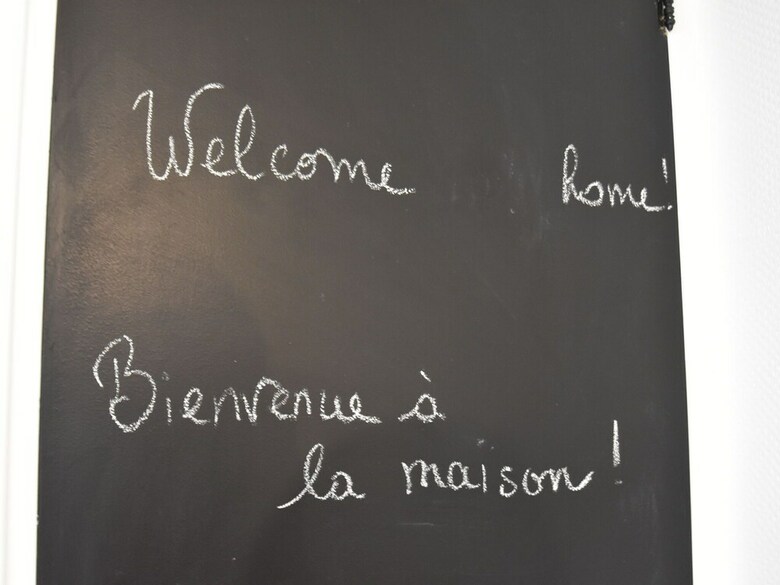 Welcome home!
Bienvenue à
la maison!